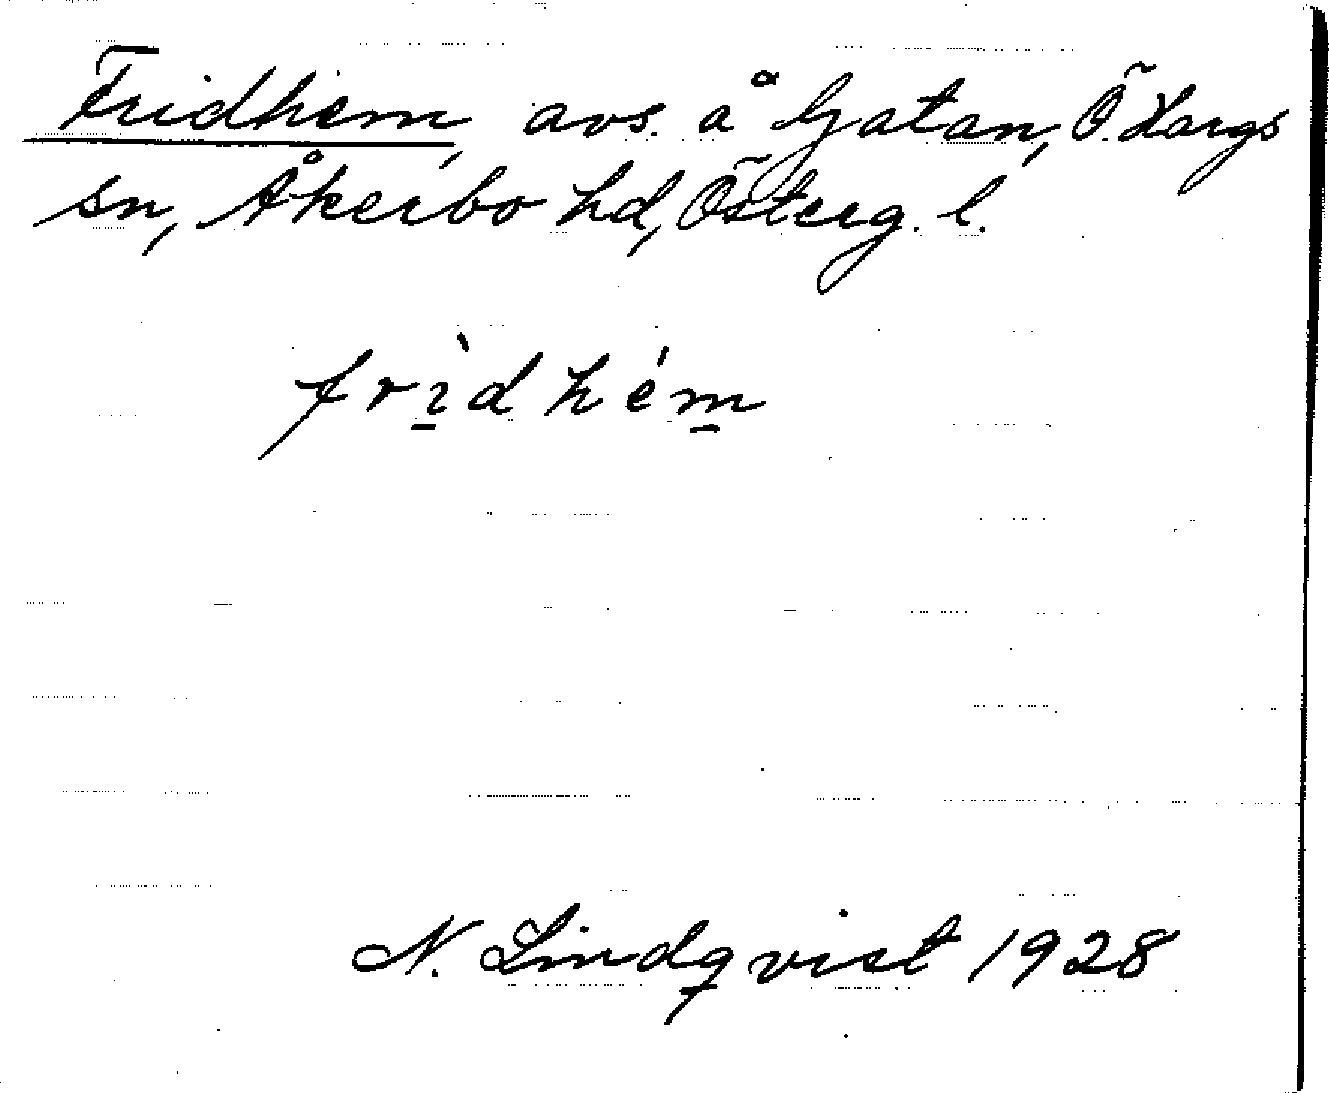 Fridhem, avs. å Gatan, Ö. Hargs
sn, Åkerbo hd, Österg. l.
frìdhém
N. Lindqvist 1928